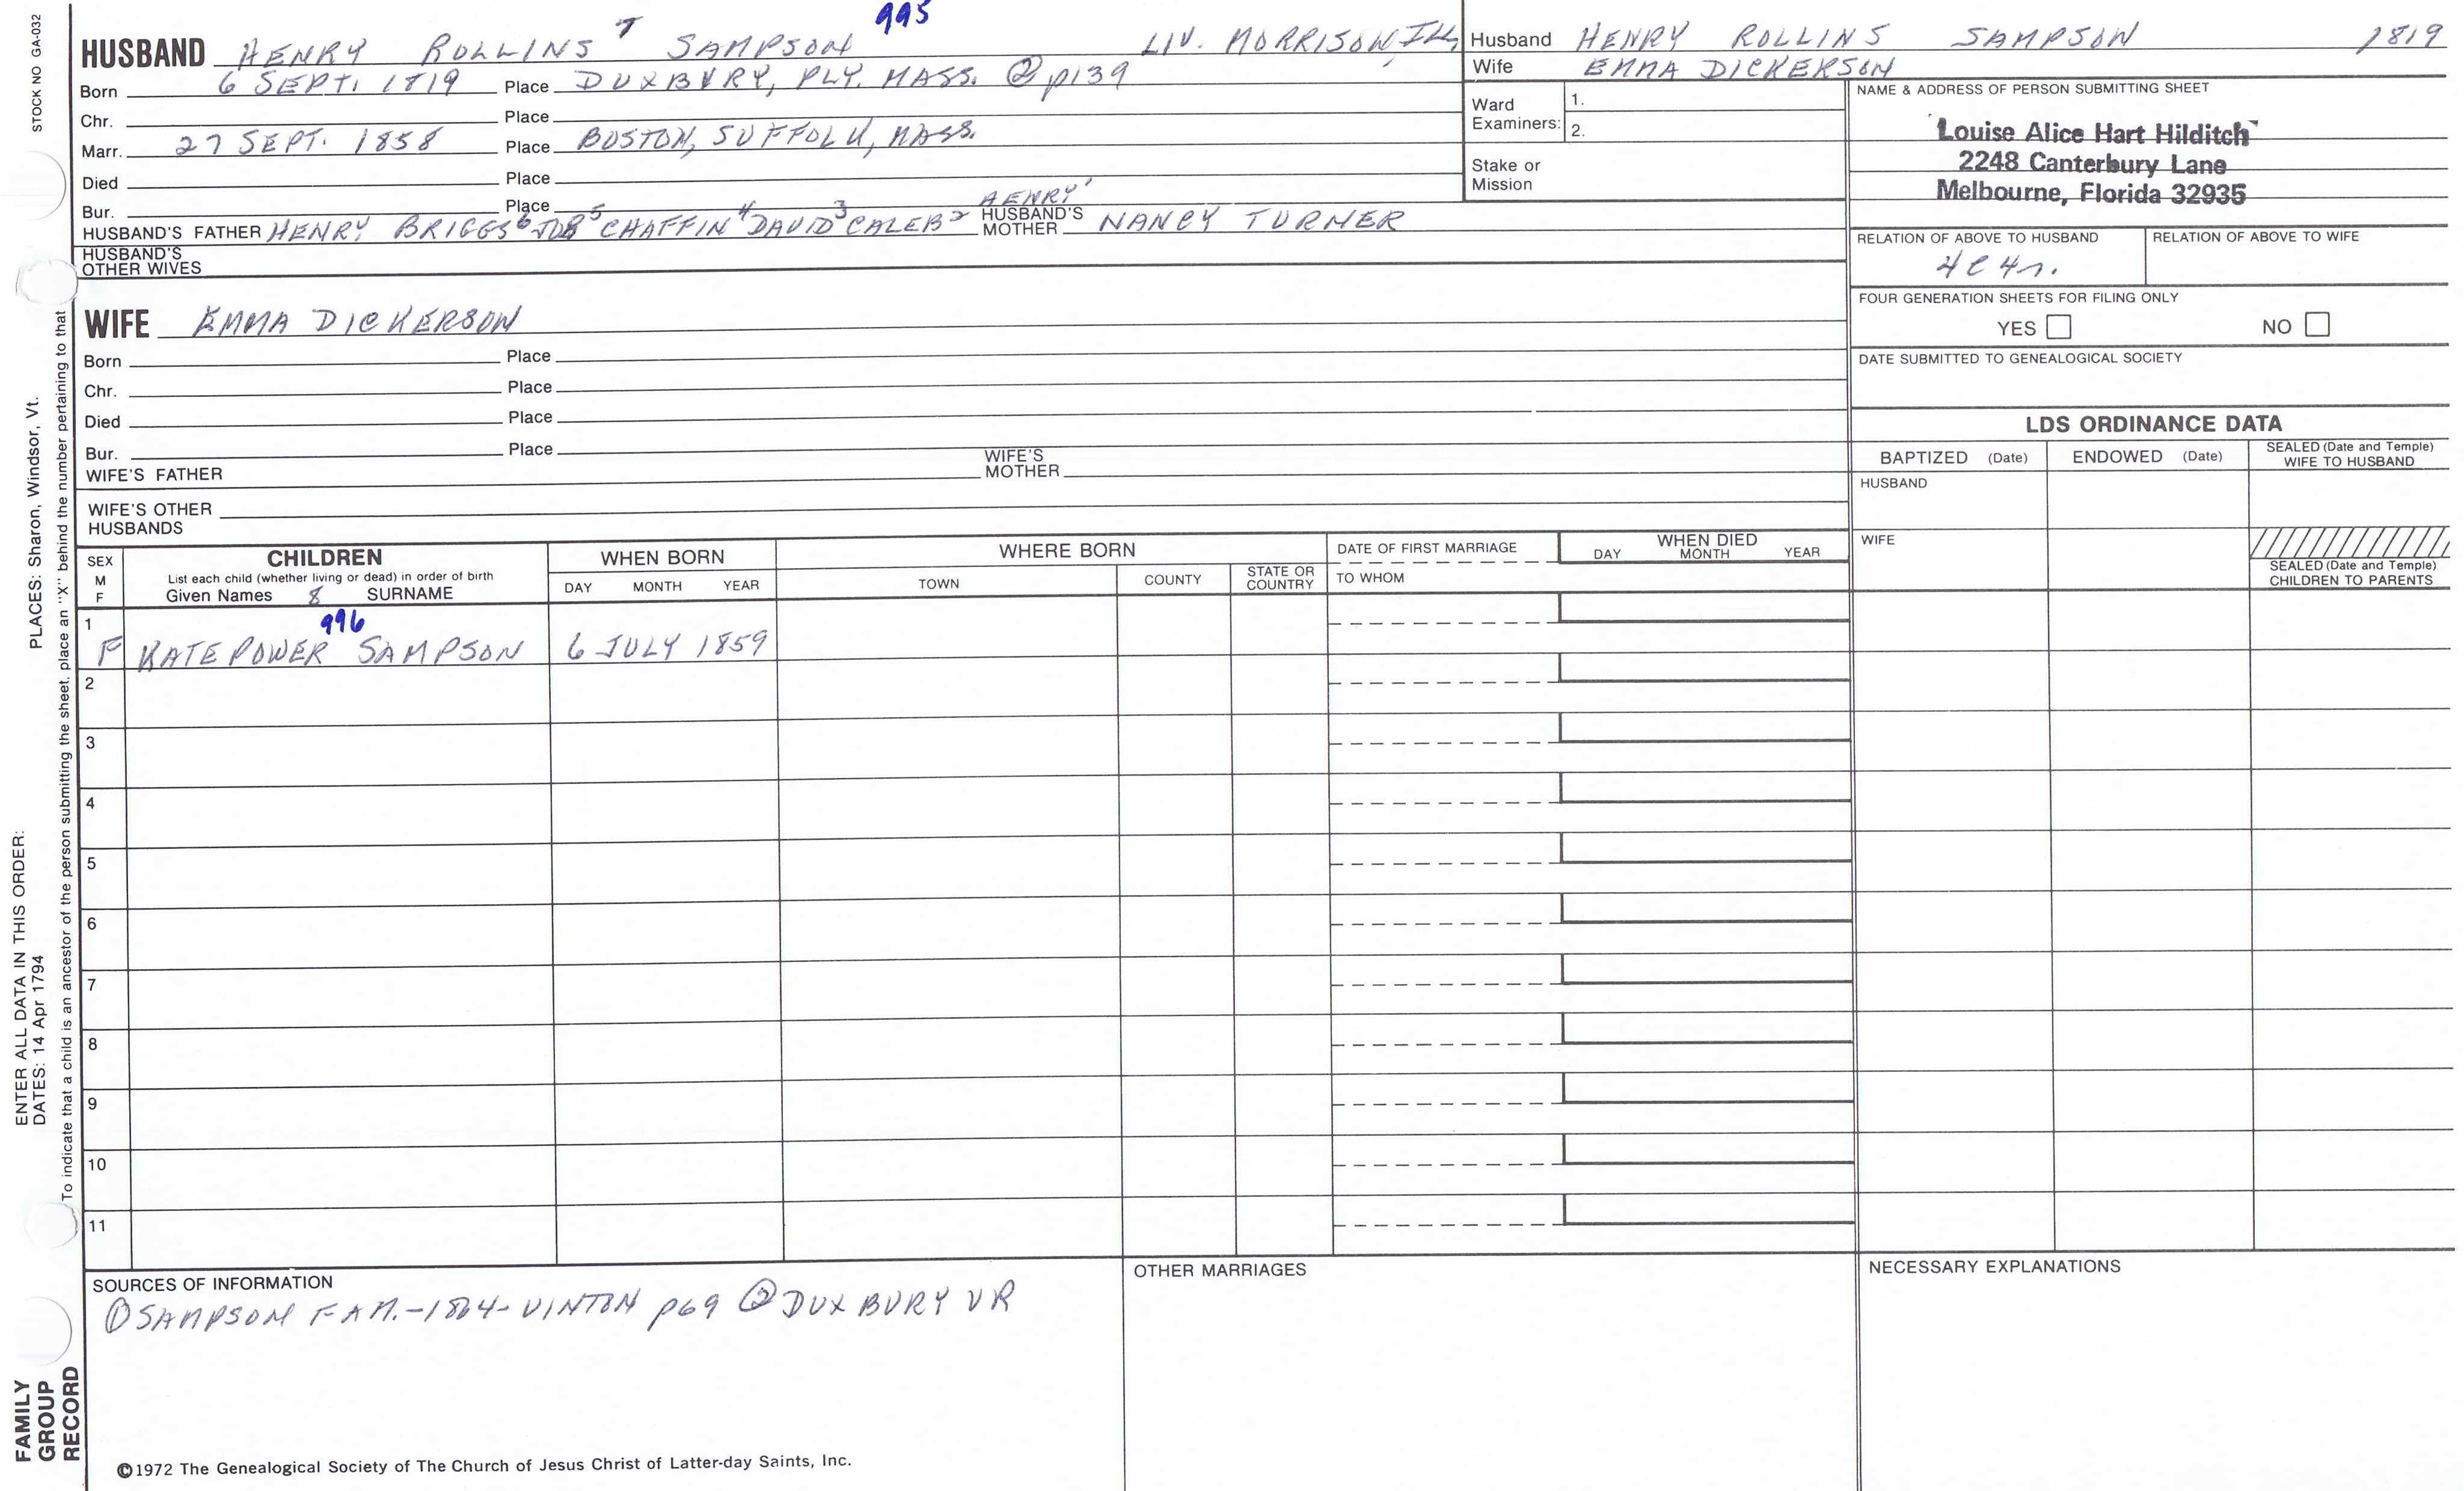 995
HUSBAND HENRY ROLLINS 7 SAMPSON LIV. MORRISON, ILL
Born 6 SEPT. 1819 Place DUXBURY, PLY. MASS. ② p139
Chr. Place
Marr. 27 SEPT. 1858 Place BOSTON, SUFFOLK, MASS.
Died Place
Bur. Place
HUSBAND'S FATHER HENRY BRIGGS 6 JOB 5 CHAFFIN 4 DAVID 3 CALEB 2 HENRY 1 HUSBAND'S MOTHER NANCY TURNER
HUSBAND'S OTHER WIVES
WIFE EMMA DICKERSON
Born Place
Chr. Place
Died Place
Bur. Place
WIFE'S FATHER WIFE'S MOTHER
WIFE'S OTHER HUSBANDS
Husband HENRY ROLLINS SAMPSON 1819
Wife EMMA DICKERSON
Ward Examiners: 1.
2.
Stake or Mission
NAME & ADDRESS OF PERSON SUBMITTING SHEET
Louise Alice Hart Hilditch
2248 Canterbury Lane
Melbourne, Florida 32935
RELATION OF ABOVE TO HUSBAND RELATION OF ABOVE TO WIFE
4C4r.
FOUR GENERATION SHEETS FOR FILING ONLY
YES NO
DATE SUBMITTED TO GENEALOGICAL SOCIETY
LDS ORDINANCE DATA
BAPTIZED (Date) ENDOWED (Date) SEALED (Date and Temple) WIFE TO HUSBAND
HUSBAND
WIFE
SEALED (Date and Temple) CHILDREN TO PARENTS
SEX M F
CHILDREN
List each child (whether living or dead) in order of birth
Given Names 8 SURNAME
WHEN BORN
DAY MONTH YEAR
WHERE BORN
TOWN COUNTY STATE OR COUNTRY
DATE OF FIRST MARRIAGE
TO WHOM
WHEN DIED
DAY MONTH YEAR
1 996
F KATE POWER SAMPSON 6 JULY 1859
2
3
4
5
6
7
8
9
10
11
SOURCES OF INFORMATION
① SAMPSON FAM.-1864-VINTON p69 ② DUXBURY VR
OTHER MARRIAGES
NECESSARY EXPLANATIONS
©1972 The Genealogical Society of The Church of Jesus Christ of Latter-day Saints, Inc.
STOCK NO GA-032
PLACES: Sharon, Windsor, Vt.
ENTER ALL DATA IN THIS ORDER:
DATES: 14 Apr 1794
To indicate that a child is an ancestor of the person submitting the sheet, place an "X" behind the number pertaining to that
FAMILY
GROUP
RECORD